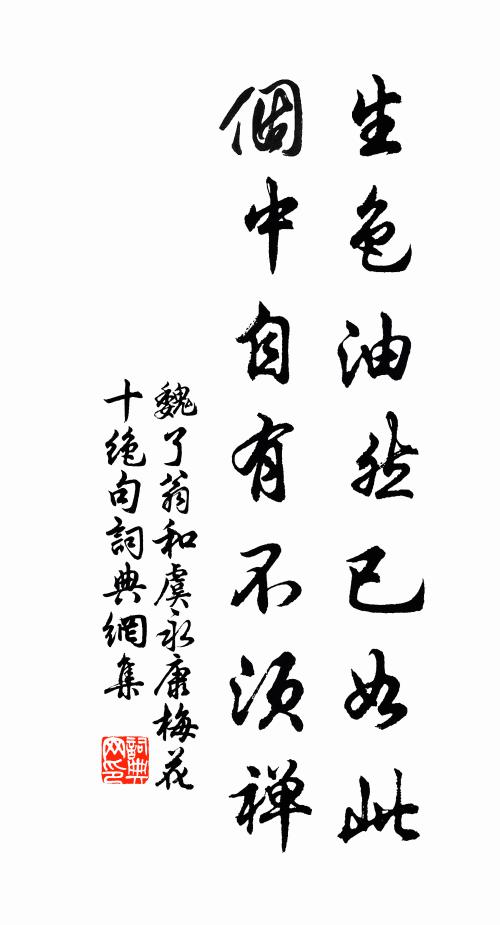 生色油然已如此
個中自有不須禪
魏了翁和虞永康梅花
十絶句詞典網集
詞典
网印